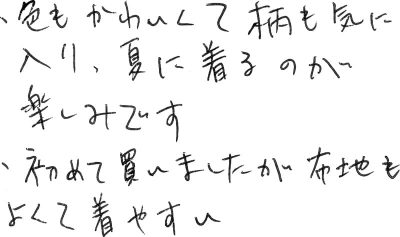 、色もかわいくて柄も気に
入り、夏に着るのが
楽しみです
、初めて買いましたが布地も
よくて着やすい